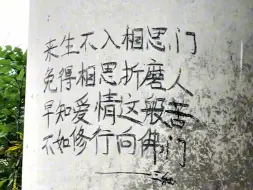 来生不入相思门
免得相思折磨人
早知爱情这般苦
不如修行向佛门